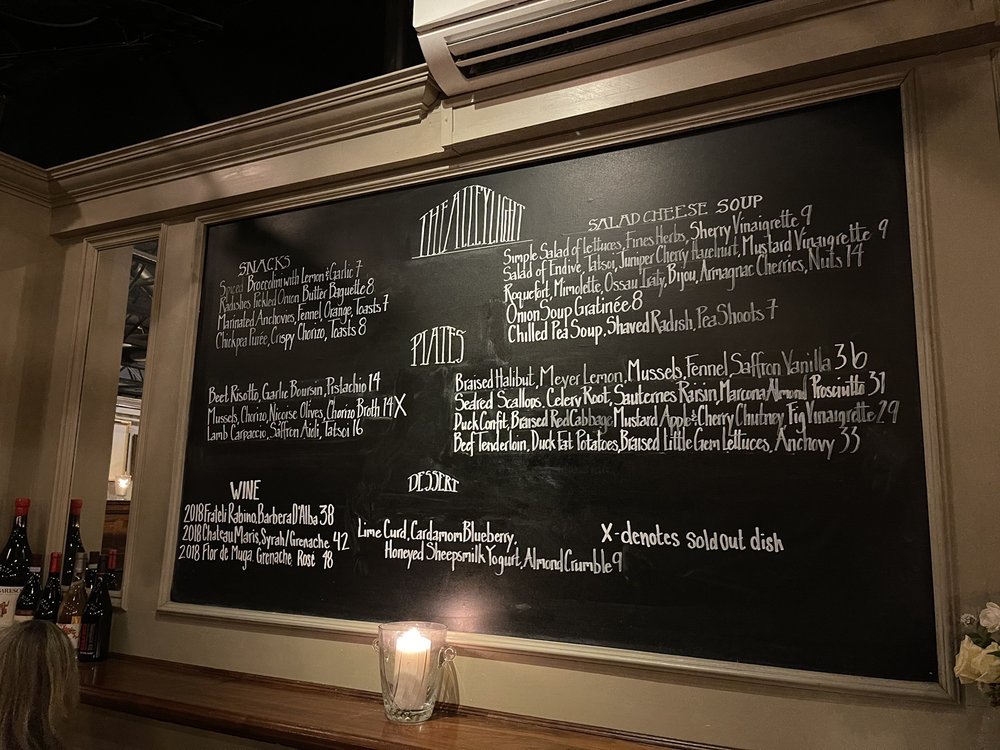 THE ALLEY LIGHT
SNACKS
Spiced Broccolini with Lemon & Garlic 7
Radishes Pickled Onion Butter Baguette 8
Marinated Anchovies, Fennel Orange, Toasts 7
Chickpea Purée, Crispy Chorizo, Toasts 8
SALAD CHEESE SOUP
Simple Salad of lettuces, Fines Herbs, Sherry Vinaigrette 9
Salad of Endive, Tatsoi, Juniper Cherry Hazelnut, Mustard Vinaigrette 9
Roquefort, Mimolette, Ossau Iraty, Bijou, Armagnac Cherries, Nuts 14
Onion Soup Gratinée 8
Chilled Pea Soup, Shaved Radish, Pea Shoots 7
PLATES
Beet Risotto, Garlic Boursin, Pistachio 14
Mussels, Chorizo, Nicoise Olives, Chorizo Broth 14 X
Lamb Carpaccio, Saffron Aioli, Tatsoi 16
Braised Halibut, Meyer Lemon, Mussels, Fennel, Saffron Vanilla 36
Seared Scallops, Celery Root, Sauternes Raisin, Marcona Almond Prosciutto 31
Duck Confit, Braised Red Cabbage Mustard Apple & Cherry Chutney, Fig Vinaigrette 29
Beef Tenderloin, Duck Fat Potatoes, Braised Little Gem Lettuces, Anchovy 33
WINE
2018 Frateli Rabino, Barbera D'Alba 38
2018 Chateau Maris, Syrah/Grenache 42
2018 Flor de Muga, Grenache, Rosé 48
DESSERT
Lime Curd, Cardamom Blueberry,
Honeyed Sheepsmilk Yogurt, Almond Crumble 9
X-denotes sold out dish